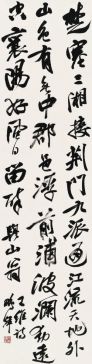 楚塞三湘接荆门九派通江流天地外
山色有无中郡邑浮前浦波澜动远
空襄阳好風日留醉與山翁
王维诗